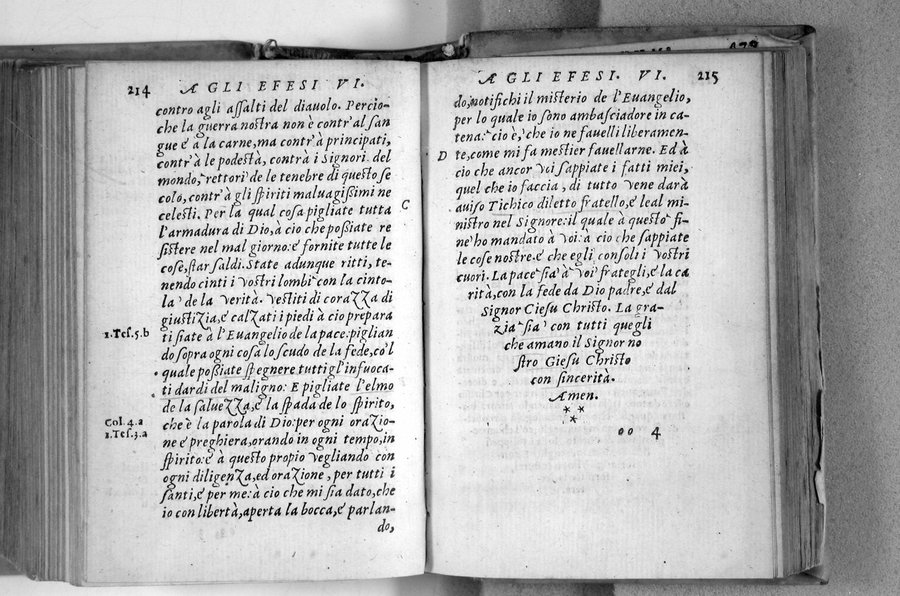 214 Æ GLI EFESI VI.
contro agli assalti del diauolo. Percio-
che la guerra nostra non è contr'al san
gue é à la carne, ma contr'à principati,
contr'à le podestà, contrà i Signori del
mondo, rettori de le tenebre di questo se
colo, contr'à gli spiriti maluagissimi ne
celesti. Per la qual cosa pigliate tutta
C
l'armadura di Dio, à cio che possiate re
sistere nel mal giorno: é fornite tutte le
cose, star saldi. State adunque ritti, te-
nendo cinti i vostri lombi con la cinto-
la de la verità. vestiti di corazza di
giustizia, é calzati i piedi à cio prepara
1.Tes.5.b
ti siate à l'Euangelio de la pace: piglian
do sopra ogni cosa lo scudo de la fede, co'l
quale possiate spegnere tutti gl'infuoca-
ti dardi del maligno: E pigliate l'elmo
de la saluezza, é la spada de lo spirito,
Col. 4.a
che è la parola di Dio: per ogni orazio-
1.Tes.3.a
ne é preghiera, orando in ogni tempo, in
spirito: é à questo propio vegliando con
ogni diligenza, ed orazione, per tutti i
santi, é per me: à cio che mi sia dato, che
io con libertà, aperta la bocca, é parlan-
do,
Æ GLI EFESI. VI. 215
do, notifichi il misterio de l'Euangelio,
per lo quale io sono ambasciadore in ca-
tena: cio è, che io ne fauelli liberamen-
D
te, come mi fa mestier fauellarne. Ed à
cio che ancor voi sappiate i fatti miei,
quel che io faccia, di tutto vene darà
auiso Tichico diletto fratello, é leal mi-
nistro nel Signore: il quale à questo fi-
ne ho mandato à voi: à cio che sappiate
le cose nostre, é che egli consoli i vostri
cuori. La pace sia à voi frategli, é la ca
rità, con la fede da Dio padre, é dal
Signor Giesu Christo. La gra-
zia sia con tutti quegli
che amano il Signor no
stro Giesu Christo
con sincerità.
Æmen.
* *
*
oo 4